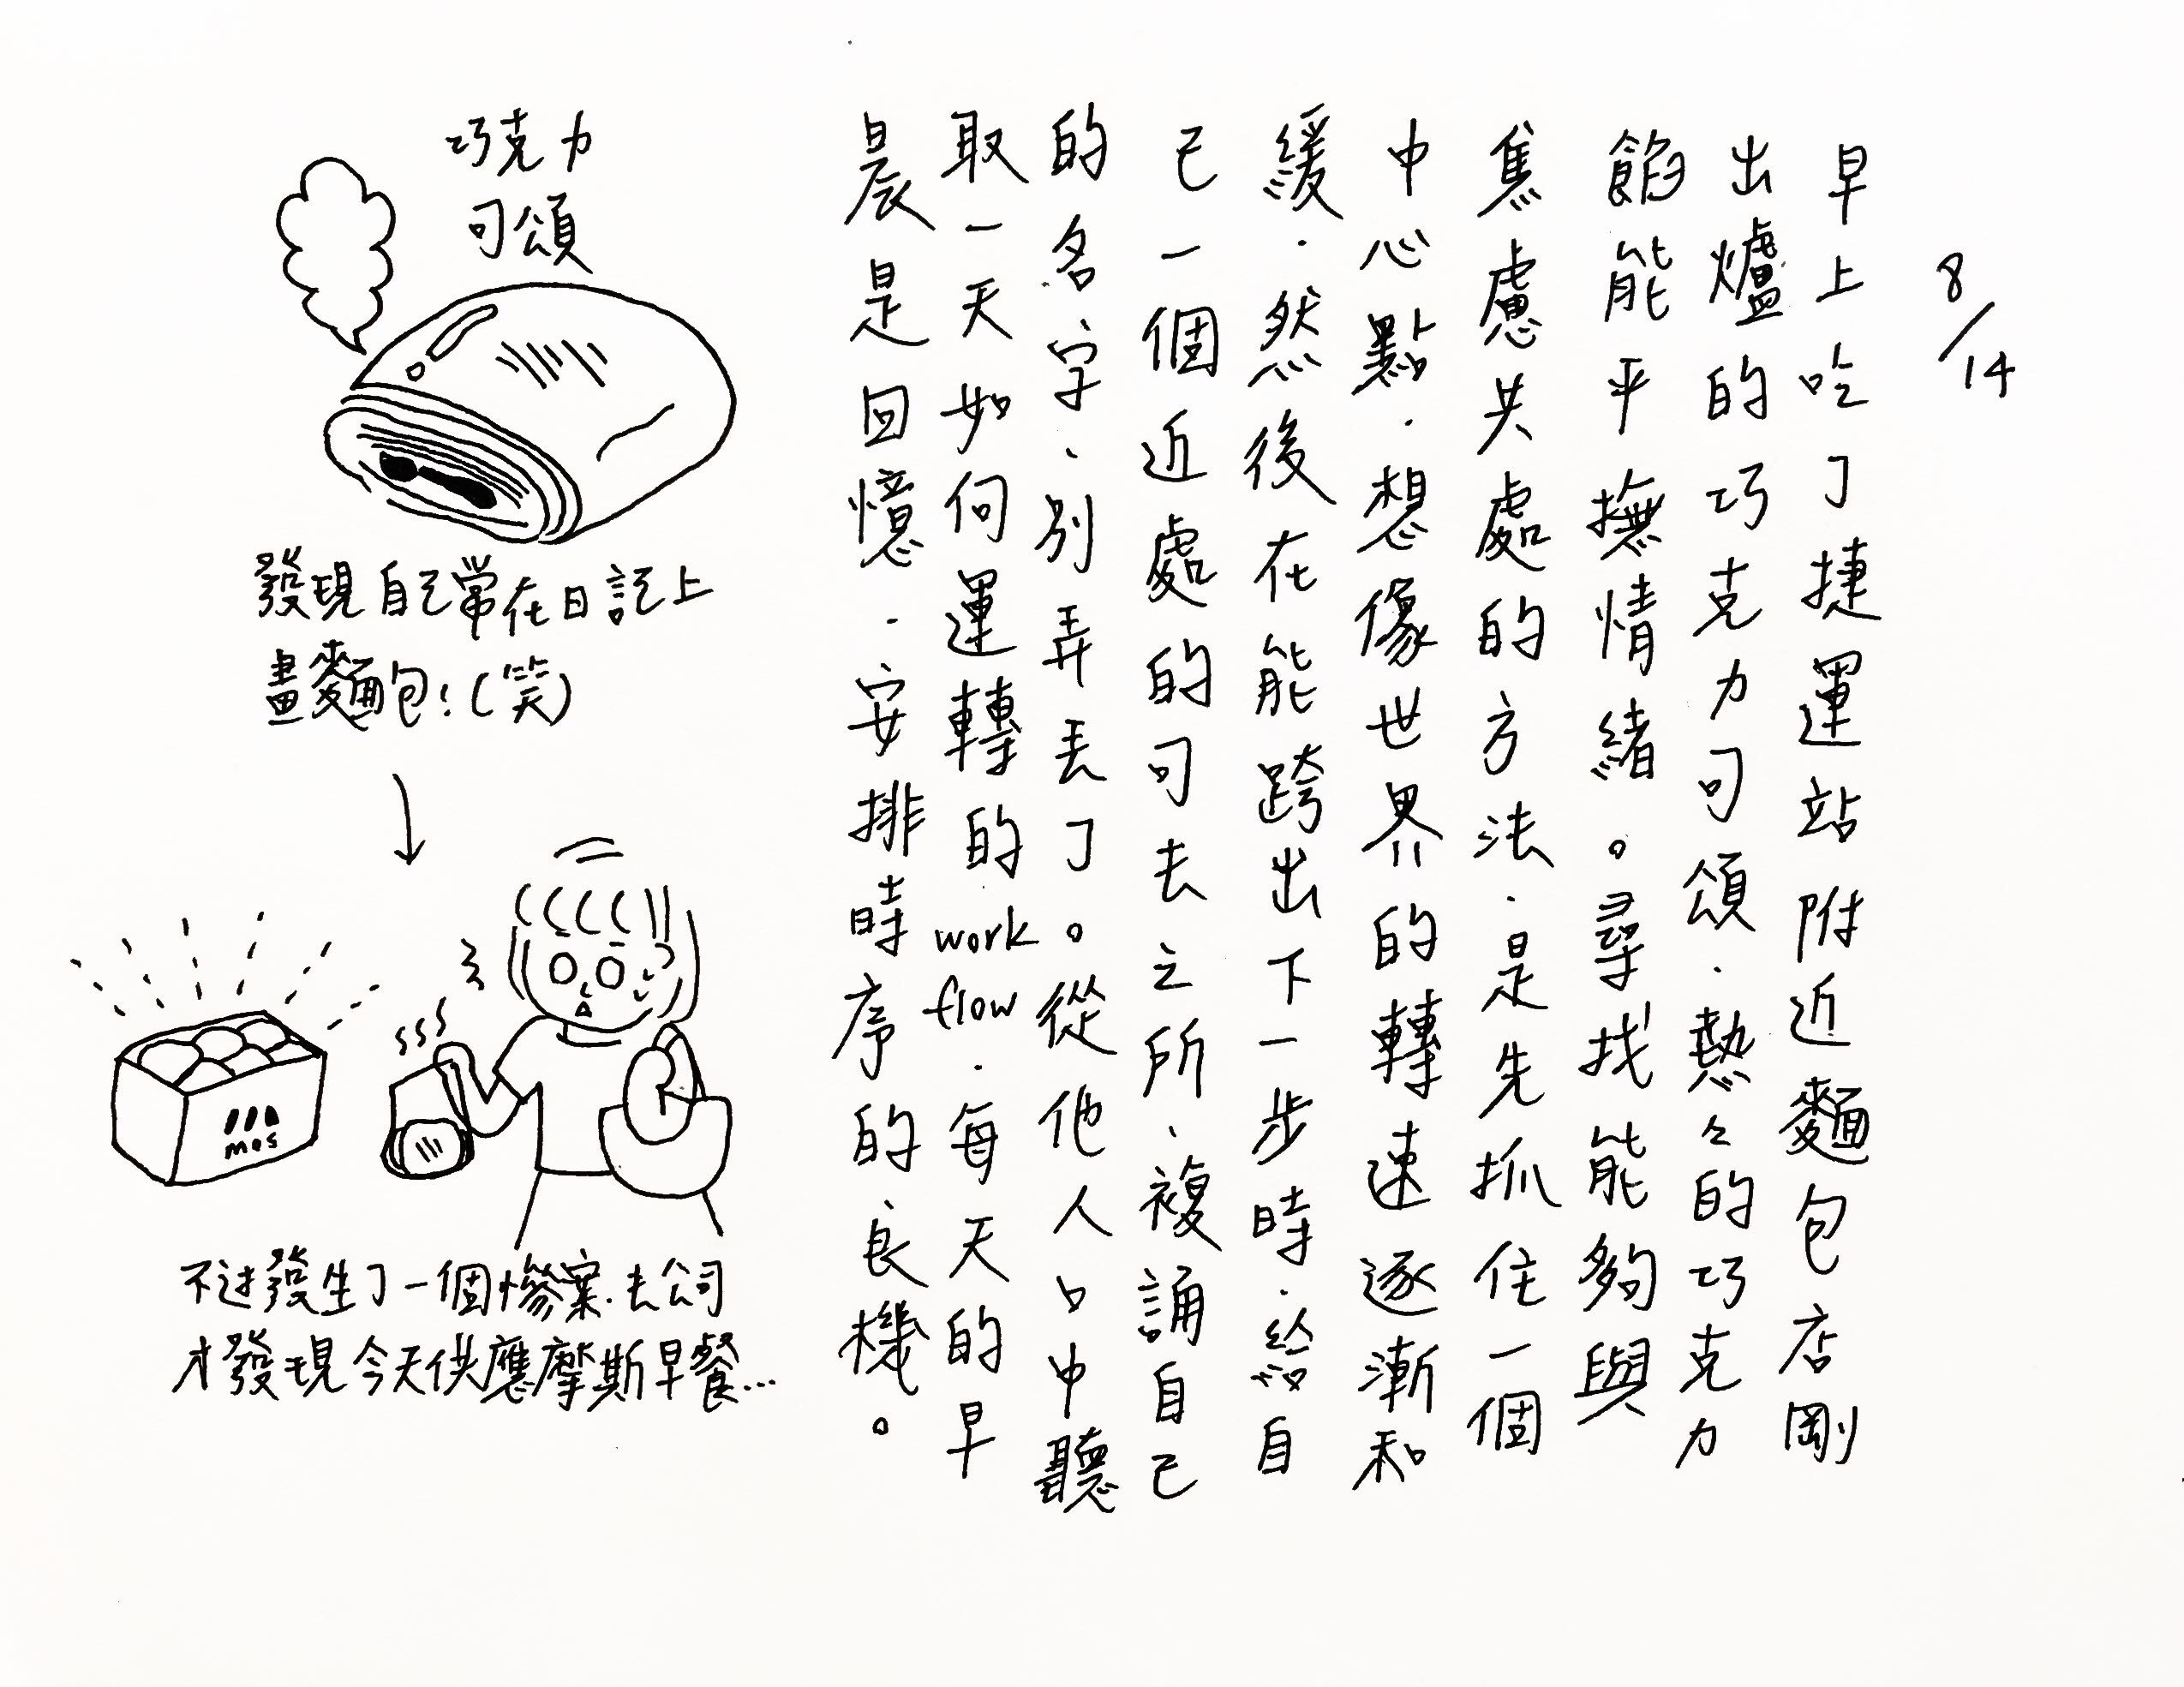 8/14
早上吃了捷運站附近麵包店剛
出爐的巧克力可頌．熱々的巧克力
餡能平撫情緒。尋找能夠與
焦慮共處的方法．是先抓住一個
中心點．想像世界的轉速逐漸和
緩．然後在能跨出下一步時．給自
己一個近處的可去之所、複誦自己
的名字、別弄丟了。從他人口中聽
取一天如何運轉的work flow．每天的早
晨是回憶．安排時序的良機。
巧克力
可頌
發現自己常在日記上
畫麵包!(笑)
mos
不过發生了一個慘案．去公司
才發現今天供應摩斯早餐...